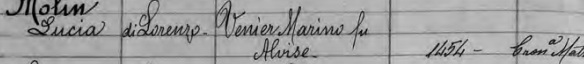 Molin
Lucia di Lorenzo - Venier Marino fu
Alvise - 1454 -